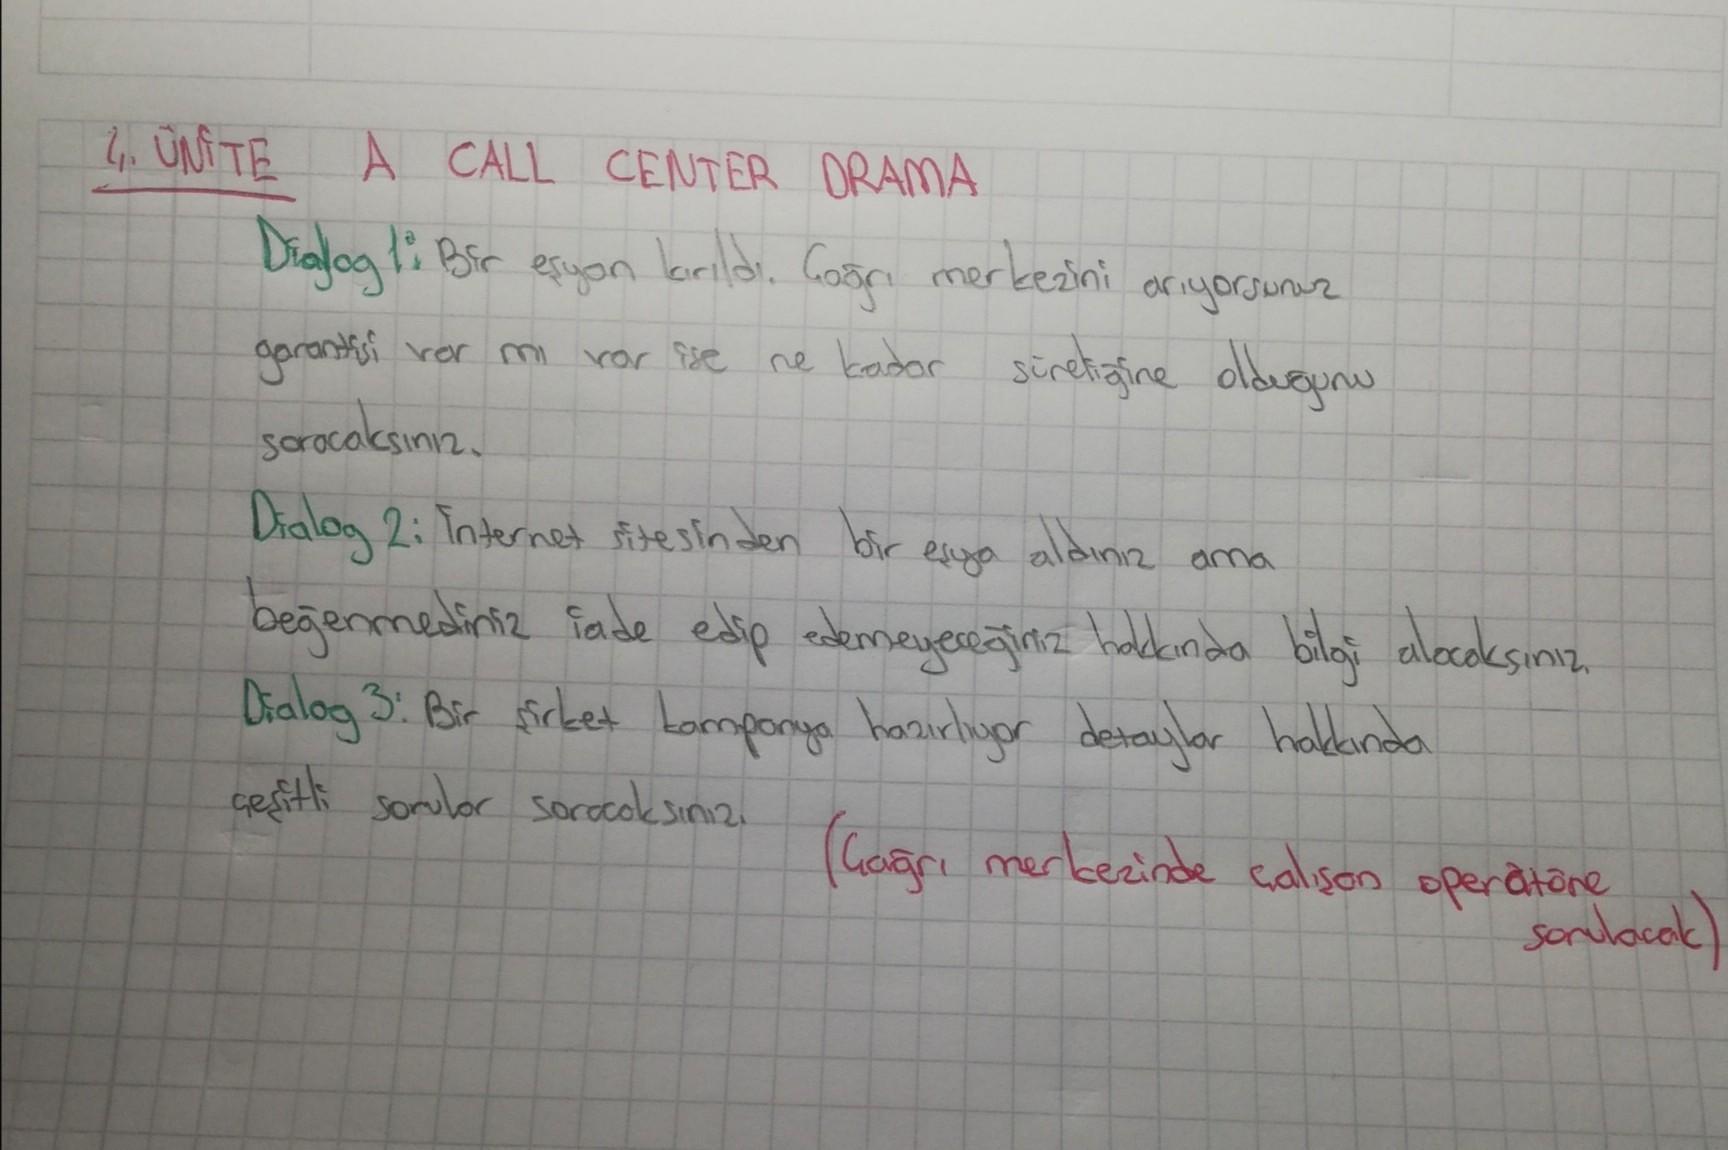 4. ÜNİTE A CALL CENTER DRAMA
Dialog 1: Bir eşyan kırıldı. Çağrı merkezini arıyorsunuz
garantisi var mı var ise ne kadar olduğunu
soracaksınız.
Dialog 2: İnternet sitesinden bir eşya aldınız ama
beğenmediniz iade edip edemeyeceğiniz hakkında bilgi alacaksınız.
Dialog 3: Bir şirket kampanya hazırlıyor detaylar hakkında
çeşitli sorular soracaksınız.
(Çağrı merkezinde çalışan operatöre
sorulacak)